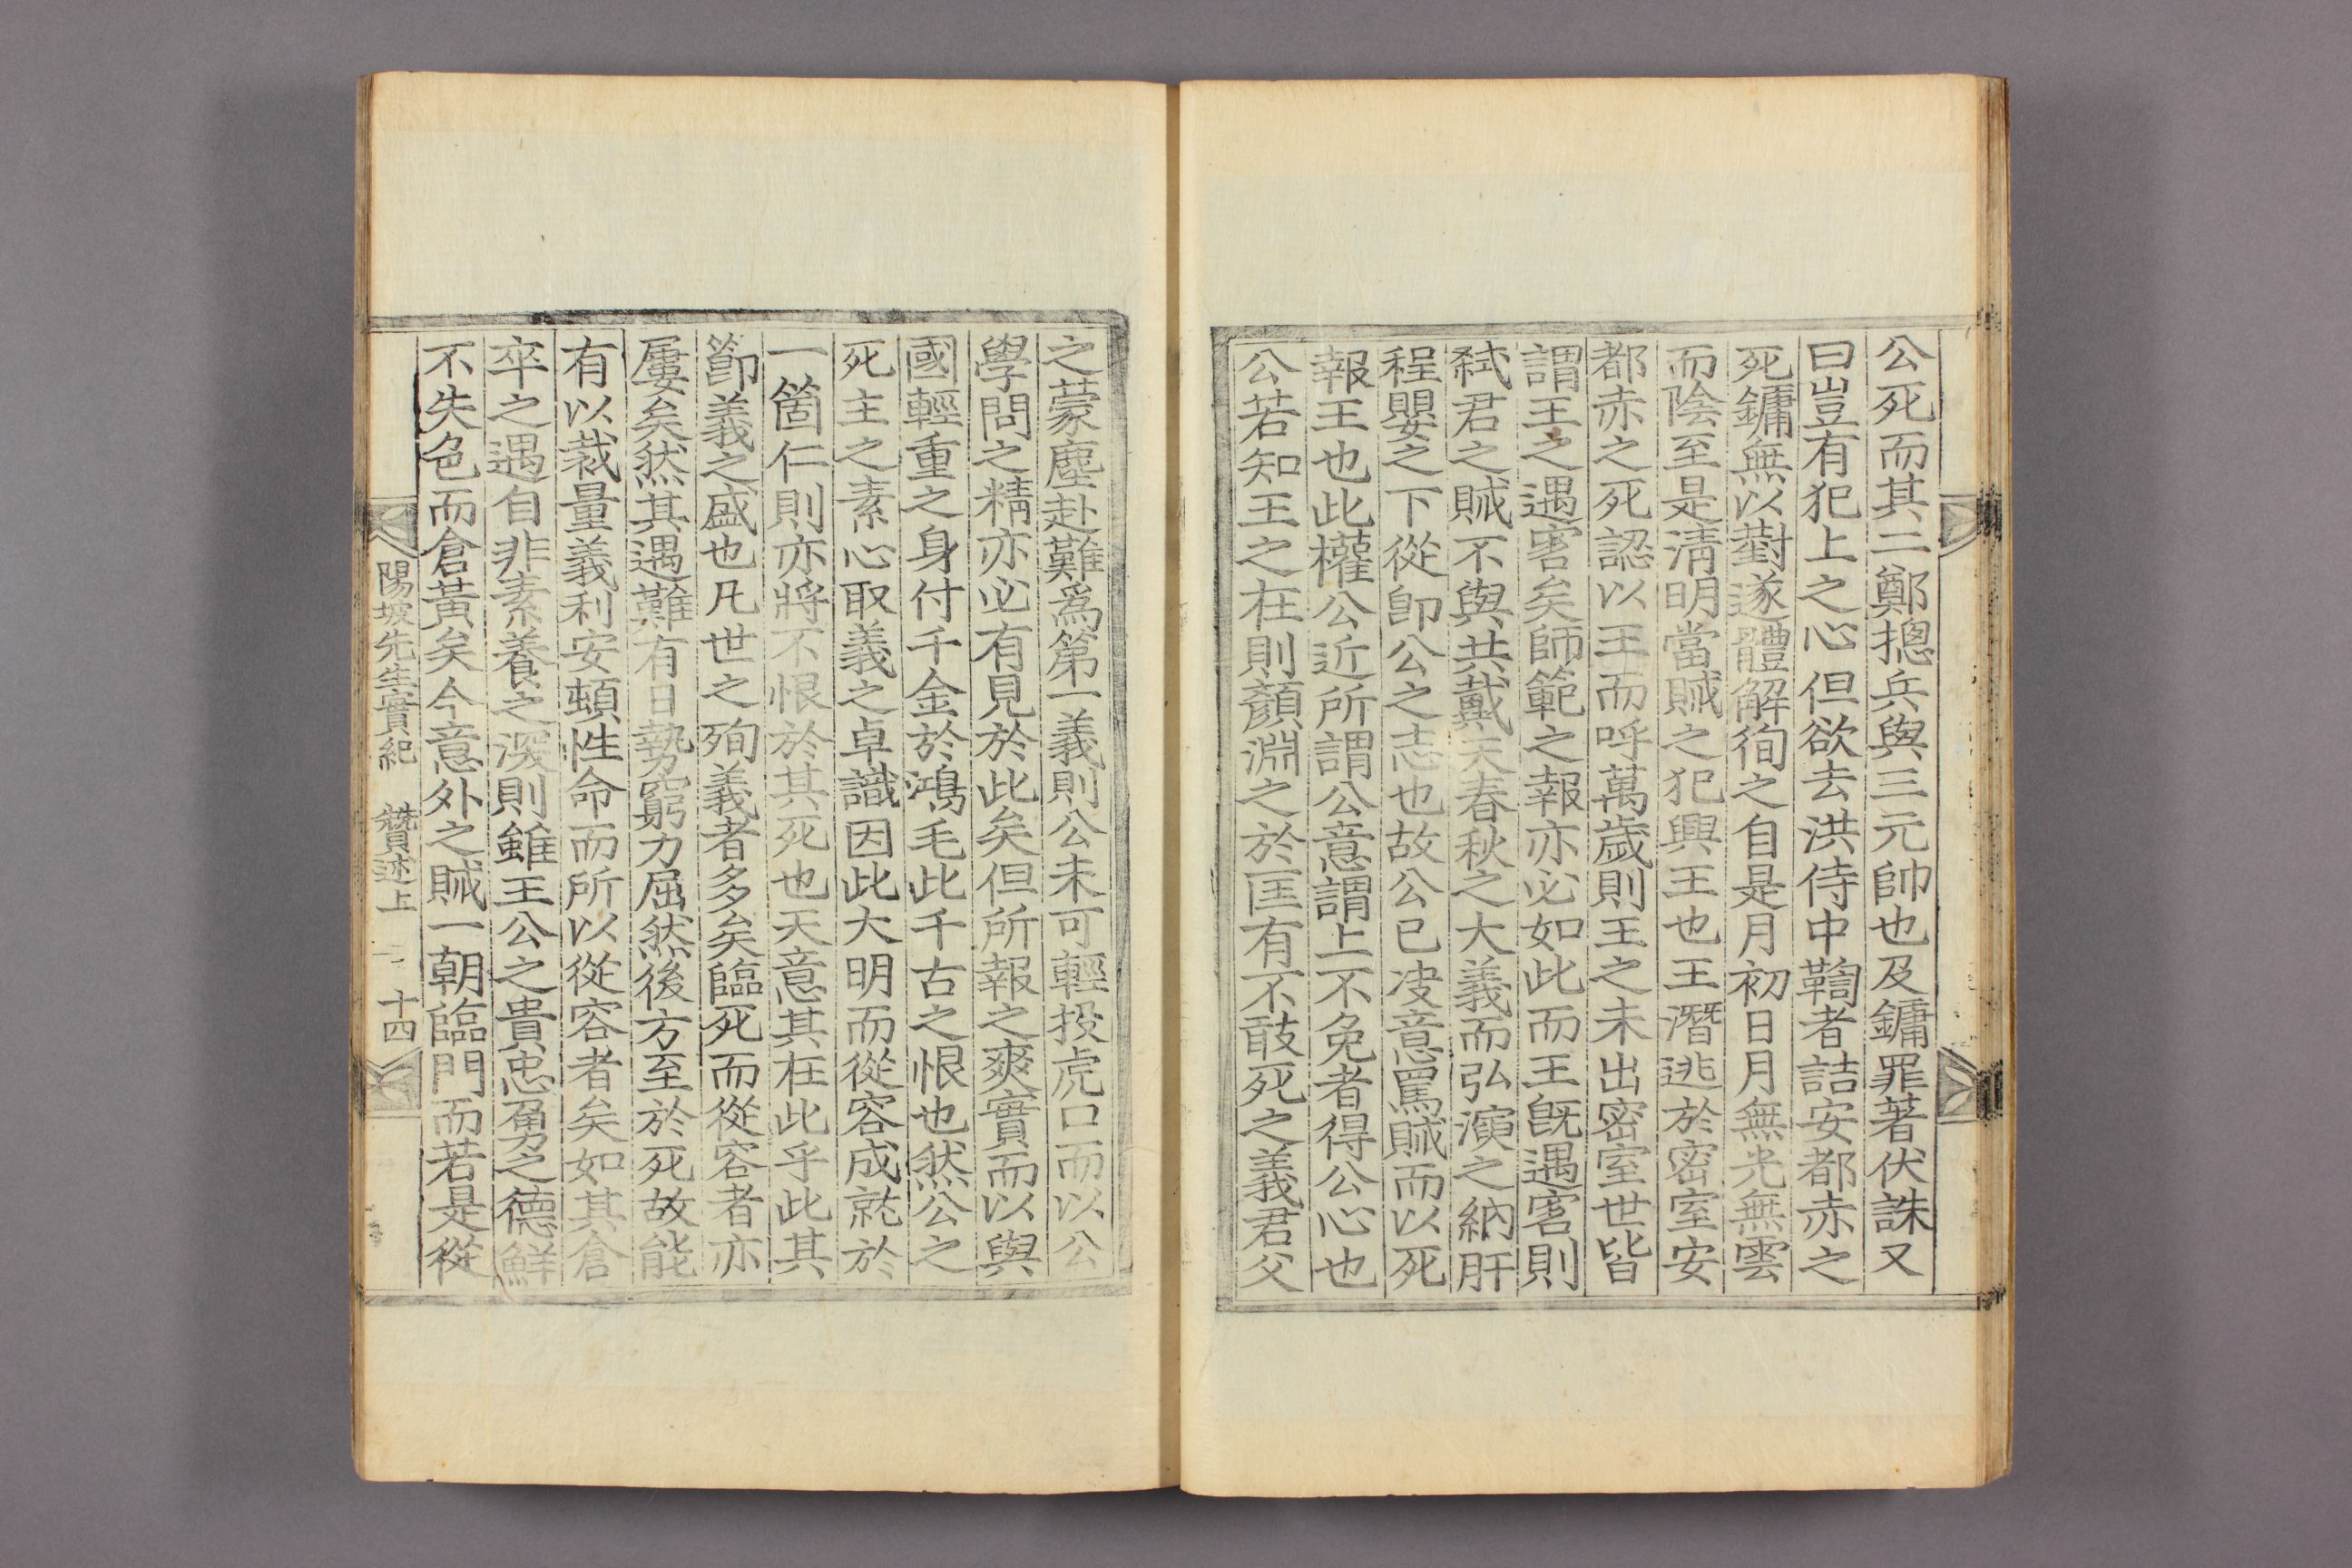 公死而其二鄭摠兵與三元帥也及鏞罪著伏誅又
曰豈有犯上之心但欲去洪侍中鞫者詰安都赤之
死鏞無以對遂體解徇之自是月初日月無光無雲
而陰至是淸明當賊之犯興王也王潛逃於密室安
都赤之死認以王而呼萬歲則王之未出密室世皆
謂王之遇害矣師範之報亦必如此而王旣遇害則
弑君之賊不與共戴天春秋之大義而弘演之納肝
程嬰之下從卽公之志也故公已决意罵賊而以死
報王也此權公近所謂公意謂上不免者得公心也
公若知王之在則顏淵之於匡有不敢死之義君父
之蒙塵赴難爲第一義則公未可輕投虎口而以公
學問之精亦必有見於此矣但所報之爽實而以與
國輕重之身付千金於鴻毛此千古之恨也然公之
死主之素心取義之卓識因此大明而從容成就於
一箇仁則亦將不恨於其死也天意其在此乎此其
節義之盛也凡世之殉義者多矣臨死而從容者亦
屢矣然其遇難有日勢窮力屈然後方至於死故能
有以裁量義利安頓性命而所以從容者矣如其倉
卒之遇自非素養之深則雖王公之貴忠勇之德鮮
不失色而倉黃矣今意外之賊一朝臨門而若是從
陽坡先生實紀 贊述上 十四